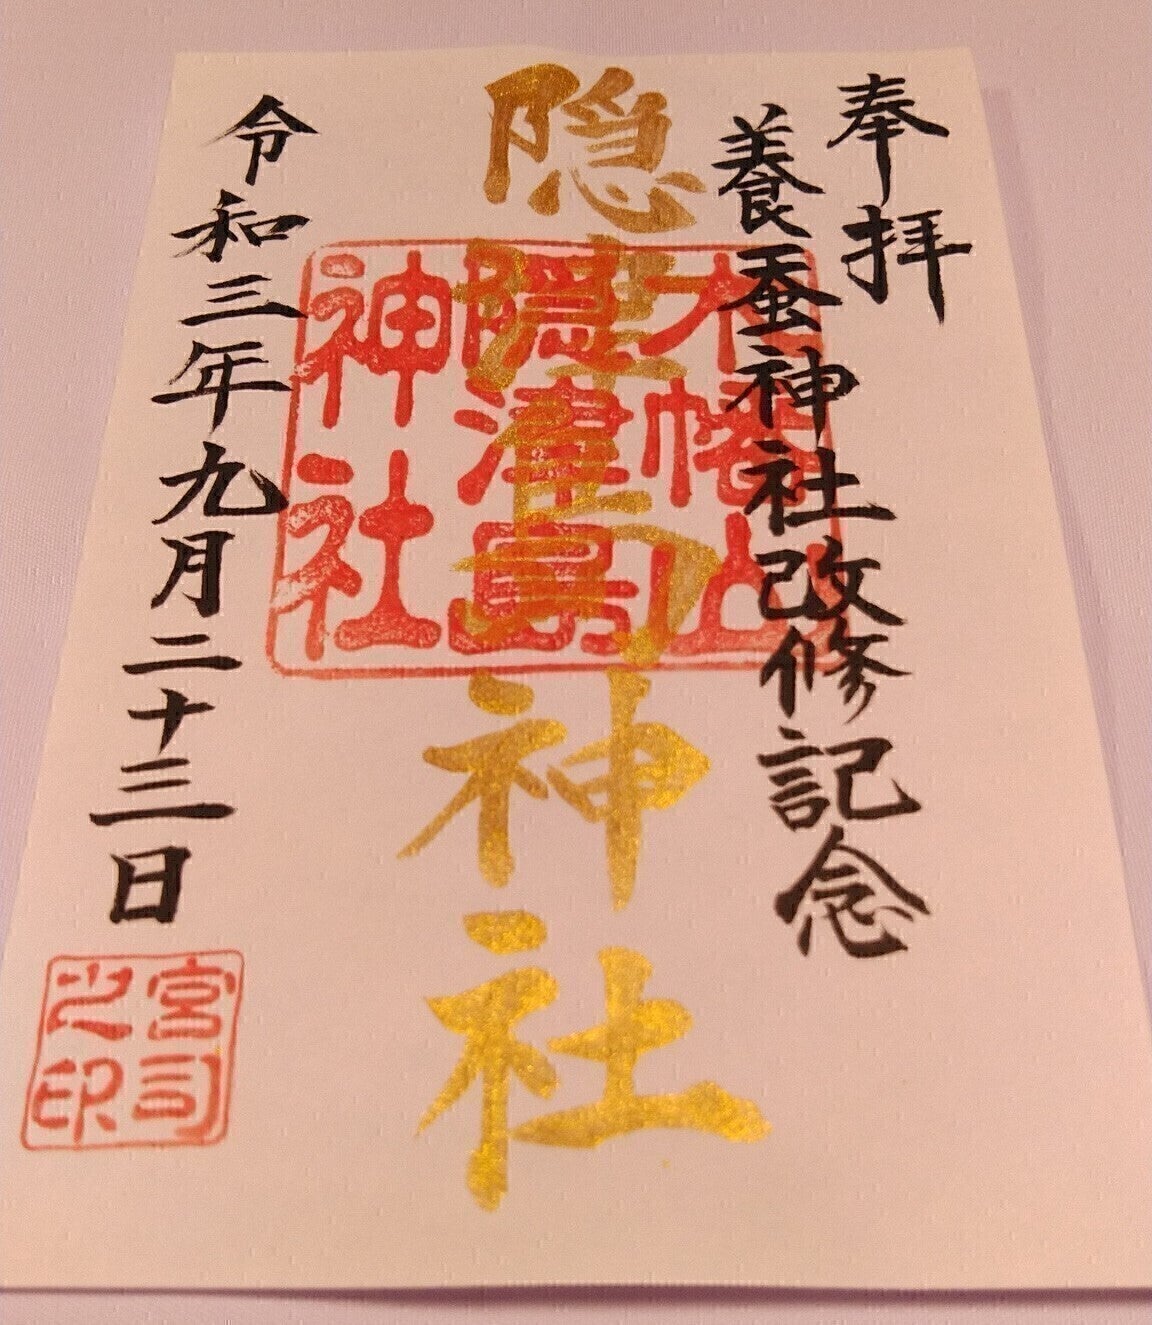 奉拝
養蚕神社改修記念
隠津島神社
木幡山
隠津島
神社
令和三年九月二十三日
宮司
之印